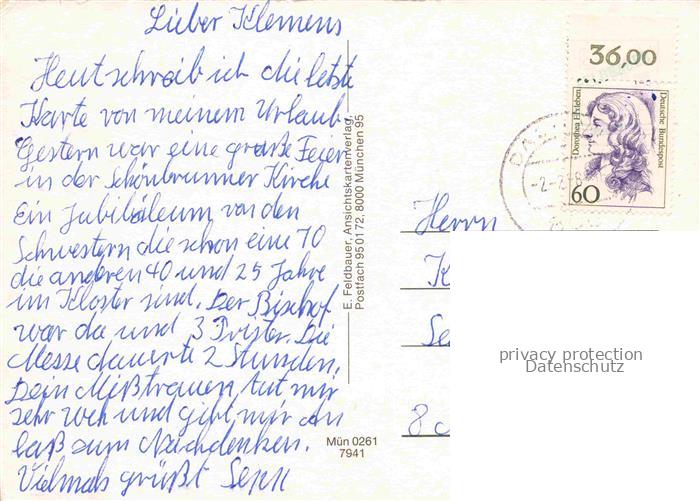 Lieber Klemens
Heut schreib ich die letzte
Karte von meinem Urlaub
Gestern war eine große Feier
in der Schönbrunner Kirche
Ein Jubiläleum von den
Schwestern die schon eine 70
die anderen 40 und 25 Jahre
im Kloster sind. Der Bischof
war da und 3 Prister. Die
Messe dauerte 2 Stunden.
Dein Mißtrauen tut mir
sehr weh und gibt mir an
laß zum Nachdenken.
Vielmals grüßt Sepp
E. Feldbauer, Ansichtskartenverlag,
Postfach 95 01 72, 8000 München 95
Mün 0261
7941
36,00
Dorothea Erxleben
Deutsche Bundespost
60
DA
-2.-
Herrn
K
Se
8
privacy protection
Datenschutz